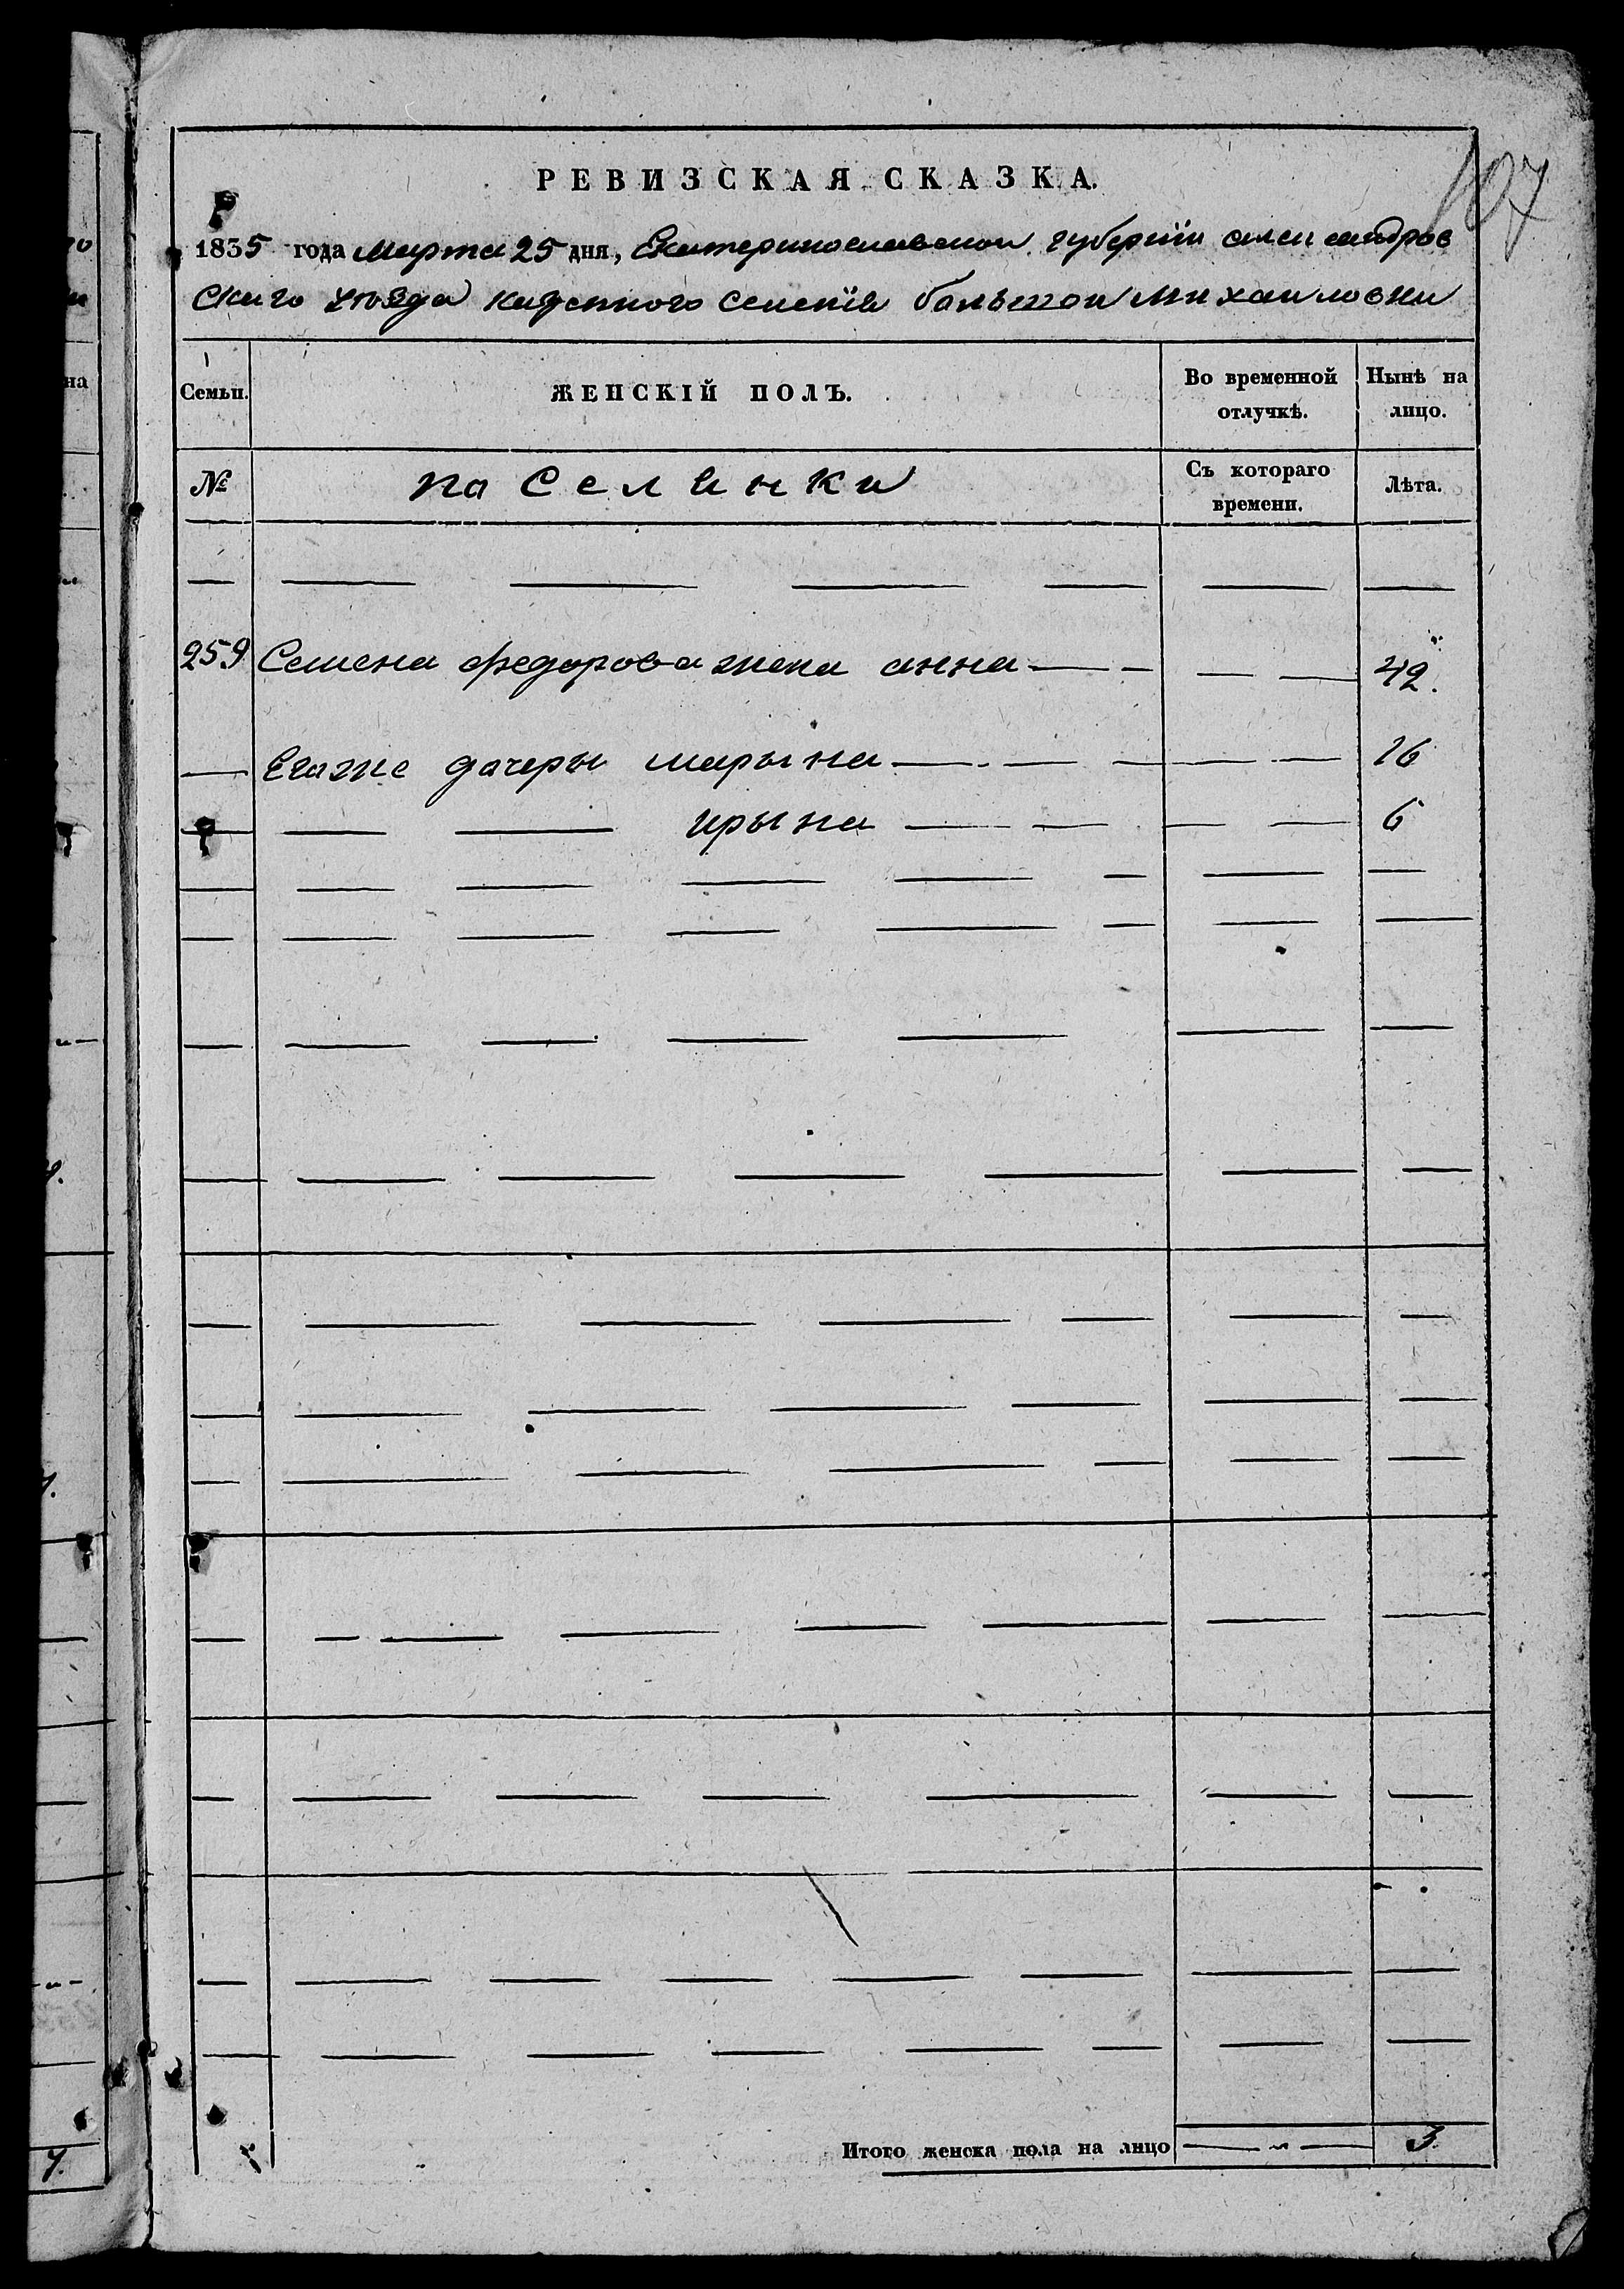 107
РЕВИЗСКАЯ СКАЗКА.
1835 года марта 25 дня, Екатеринославской губернiи александров
скаго уѣзда казенного селенiя большой михайловки
Семьи. ЖЕНСКІЙ ПОЛЪ. Во временной отлучкѣ. Нынѣ на лицо.
№ поселянки Съ котораго времени. Лѣта.
259 Семена федорова жена анна 42.
Егоже дочеры марына 16
ирына 6
Итого женска пола на лицо 3.